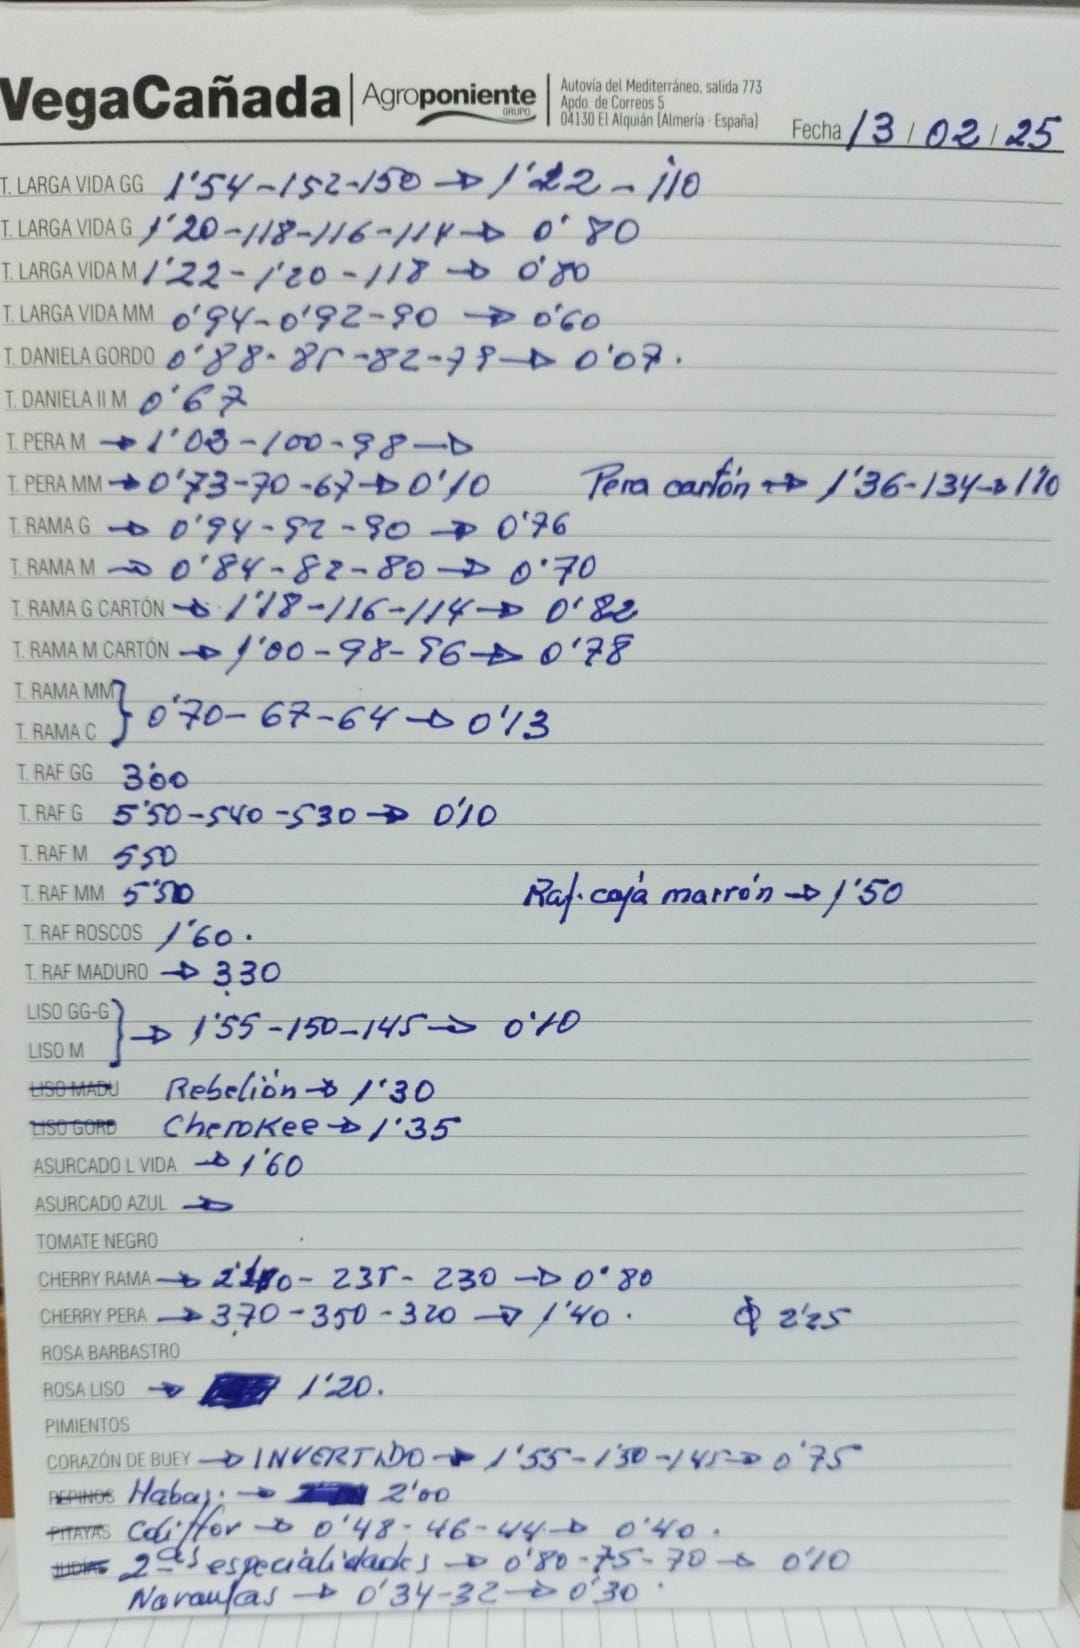 VegaCañada | Agroponiente GRUPO | Autovía del Mediterráneo, salida 773
Apdo. de Correos 5
04130 El Alquián (Almería - España)
Fecha 13 / 02 / 25
T. LARGA VIDA GG 1'54-152-150 → 1'22-110
T. LARGA VIDA G 1'20-118-116-114 → 0'80
T. LARGA VIDA M 1'22-1'20-118 → 0'80
T. LARGA VIDA MM 0'94-0'92-90 → 0'60
T. DANIELA GORDO 0'88-85-82-78 → 0'07.
T. DANIELA II M 0'67
T. PERA M → 1'03-100-98 →
T. PERA MM → 0'73-70-67 → 0'10 Pera cartón → 1'36-134 → 1'10
T. RAMA G → 0'94-92-90 → 0'76
T. RAMA M → 0'84-82-80 → 0'70
T. RAMA G CARTÓN → 1'18-116-114 → 0'82
T. RAMA M CARTÓN → 1'00-98-96 → 0'78
T. RAMA MM
T. RAMA C } 0'70-67-64 → 0'13
T. RAF GG 3'00
T. RAF G 5'50-540-530 → 0'10
T. RAF M 550
T. RAF MM 5'50 Raf. caja marrón → 1'50
T. RAF ROSCOS 1'60.
T. RAF MADURO → 3.30
LISO GG-G
LISO M } → 1'55-150-145 → 0'10
LISO MADU Rebelión → 1'30
LISO GORD Cherokee → 1'35
ASURCADO L VIDA → 1'60
ASURCADO AZUL →
TOMATE NEGRO
CHERRY RAMA → 235-230 → 0'80
CHERRY PERA → 3,70-350-320 → 1'40. 2'25
ROSA BARBASTRO
ROSA LISO → 1'20.
PIMIENTOS
CORAZÓN DE BUEY → INVERTIDO → 1'55-1'50-145 → 0'75
PEPINOS Habas: → 2'00
PITAYAS Coliflor → 0'48-46-44 → 0'40.
JUDÍAS 2ªˢ especialidades → 0'80-75-70 → 0'10
Naranjas → 0'34-32 → 0'30.